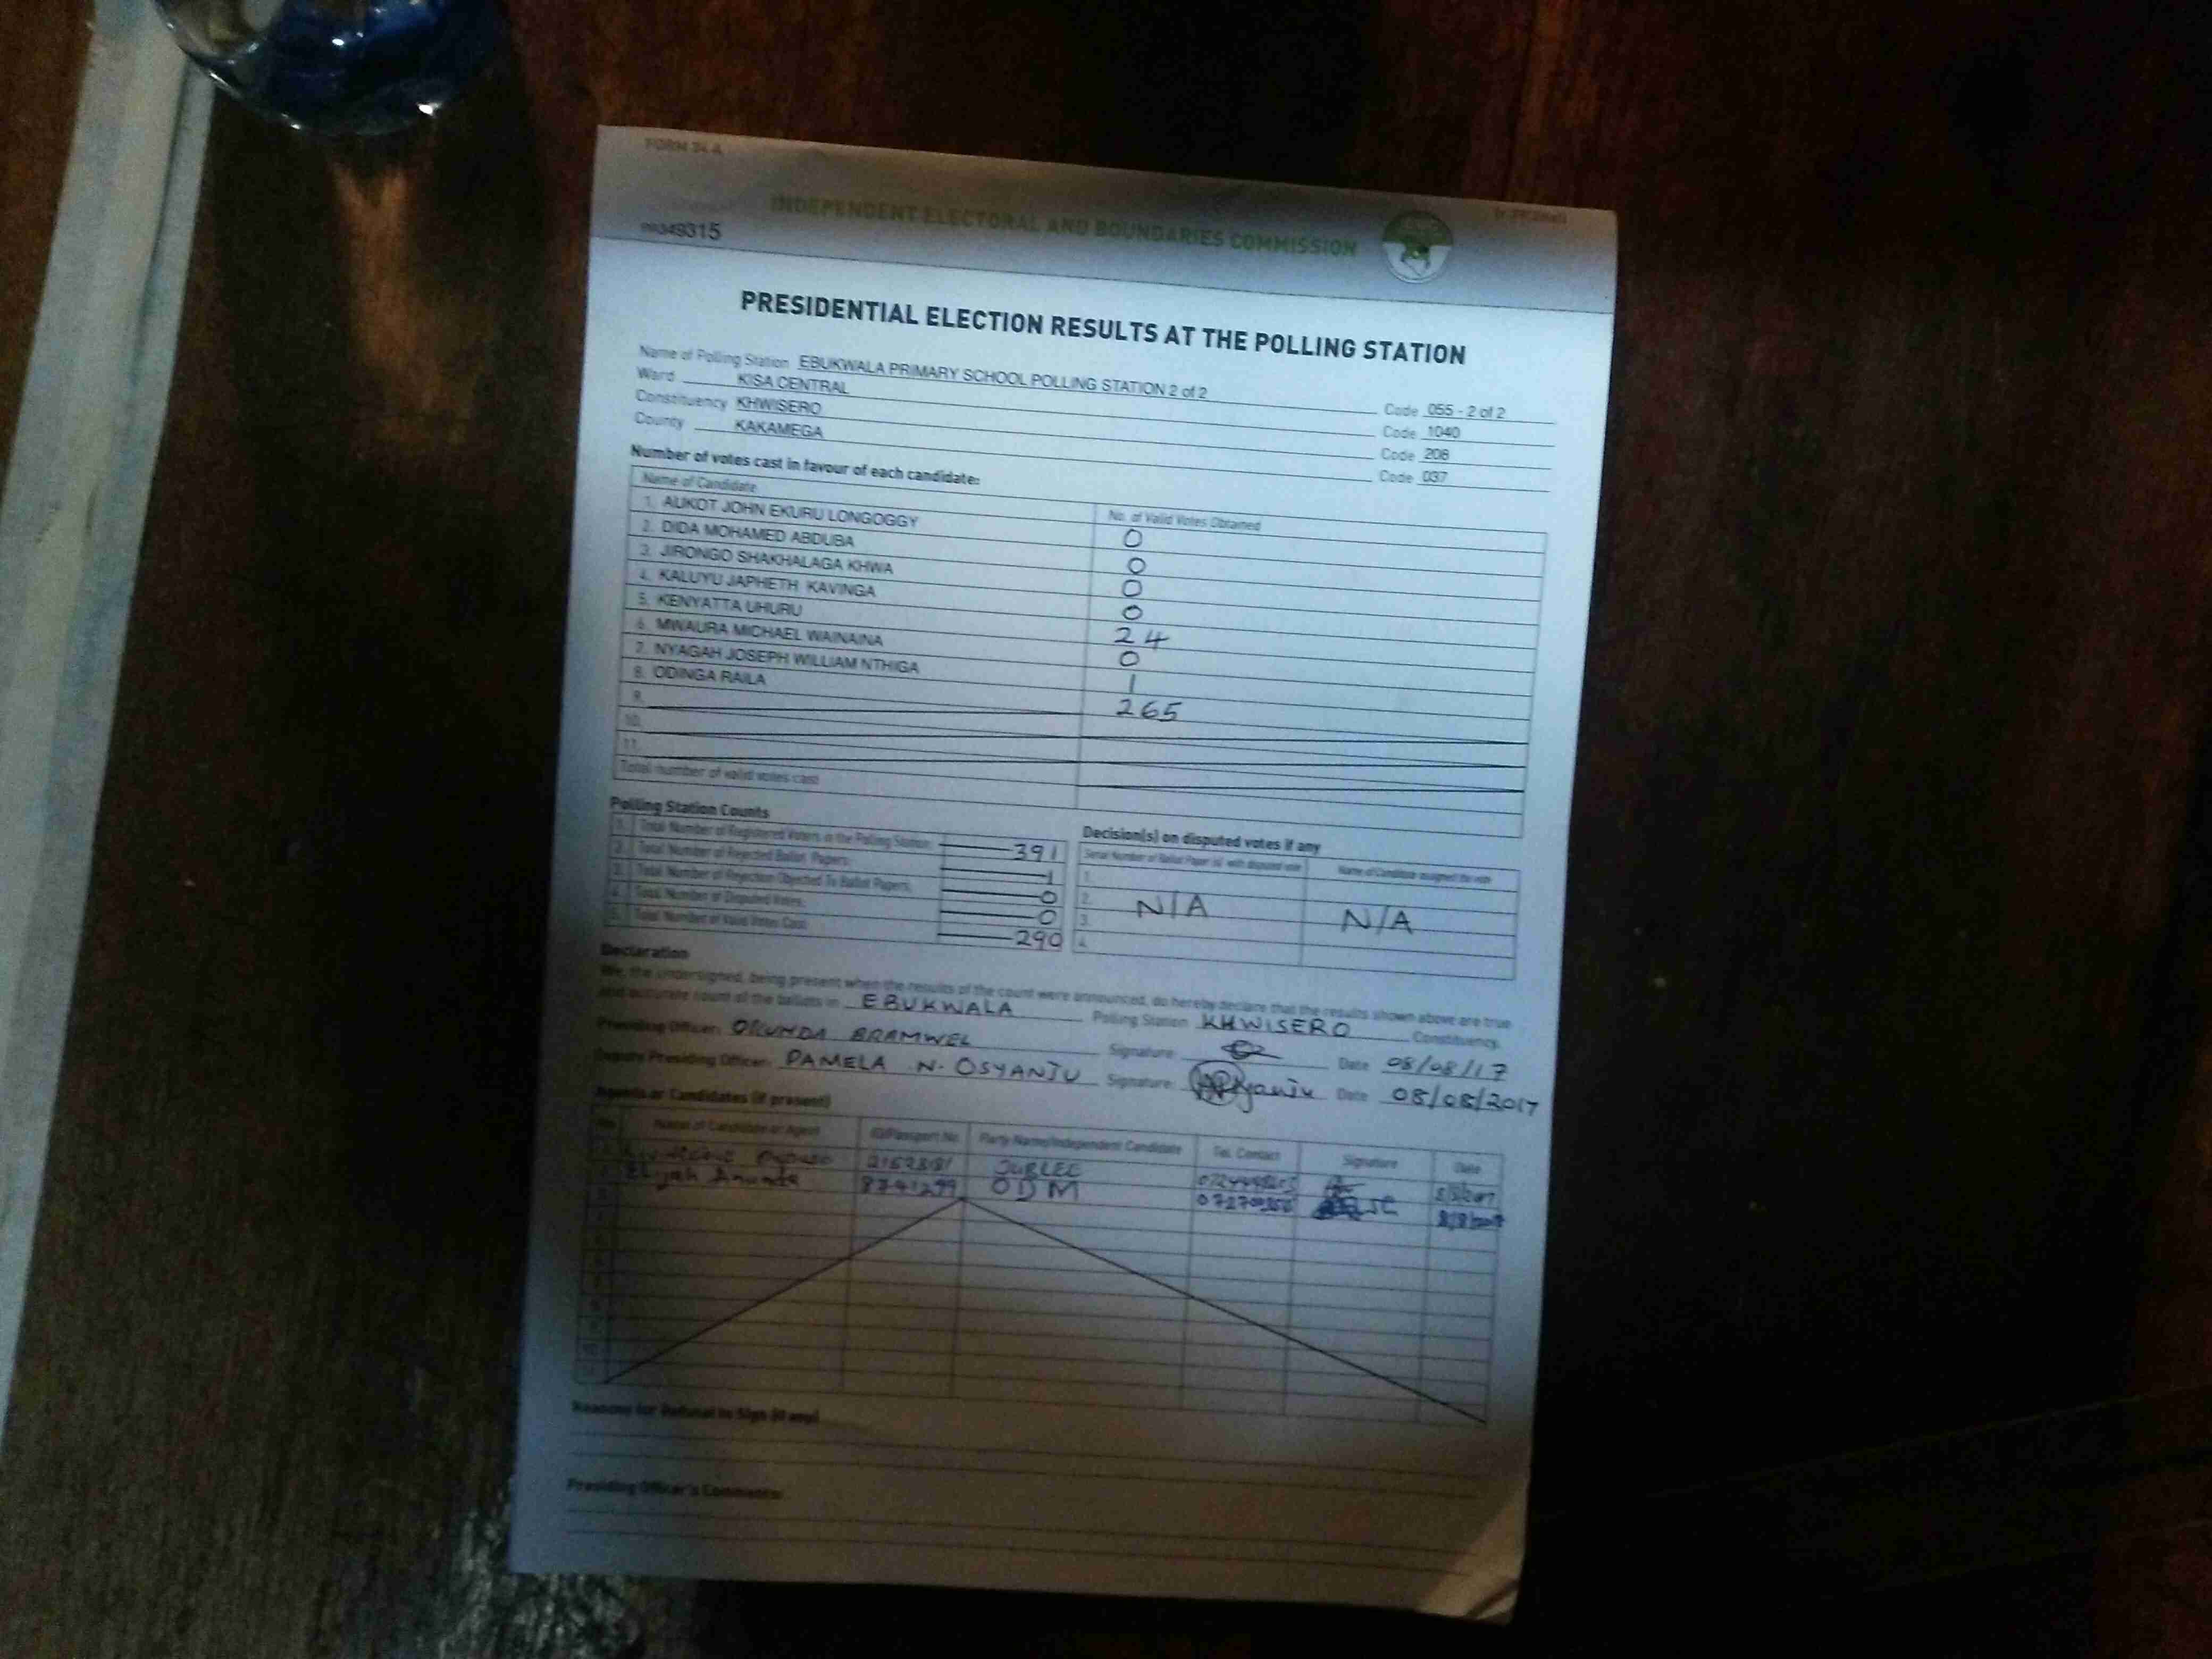 FORM 34 A
INDEPENDENT ELECTORAL AND BOUNDARIES COMMISSION
349315
PRESIDENTIAL ELECTION RESULTS AT THE POLLING STATION
Name of Polling Station EBUKWALA PRIMARY SCHOOL POLLING STATION 2 of 2 Code 055 - 2 of 2
Ward KISA CENTRAL Code 1040
Constituency KHWISERO Code 208
County KAKAMEGA Code 037
Number of votes cast in favour of each candidate:
Name of Candidate No. of Valid Votes Obtained
1. AUKOT JOHN EKURU LONGOGGY 0
2. DIDA MOHAMED ABDUBA 0
3. JIRONGO SHAKHALAGA KHWA 0
4. KALUYU JAPHETH KAVINGA 0
5. KENYATTA UHURU 24
6. MWAURA MICHAEL WAINAINA 0
7. NYAGAH JOSEPH WILLIAM NTHIGA 1
8. ODINGA RAILA 265
9.
10.
11.
Total number of valid votes cast
Polling Station Counts
1. Total Number of Registered Voters in the Polling Station 391
2. Total Number of Rejected Ballot Papers 1
3. Total Number of Rejection Objected To Ballot Papers 0
4. Total Number of Disputed Votes 0
5. Total Number of Valid Votes Cast 290
Decision(s) on disputed votes if any
Serial Number of Ballot Paper (s) with disputed vote Name of Candidate assigned the vote
1.
2. N/A N/A
3.
4.
Declaration
We, the undersigned, being present when the results of the count were announced, do hereby declare that the results shown above are true
and accurate count of the ballots in EBUKWALA Polling Station KHWISERO Constituency.
Presiding Officer: OKUNDA BRAMWEL Signature: Date 08/08/17
Deputy Presiding Officer: PAMELA N. OSYANJU Signature: Date 08/08/2017
Agents or Candidates (if present)
No. Name of Candidate or Agent ID/Passport No. Party Name/Independent Candidate Tel. Contact Signature Date
JUBLEE 8/8/2017
Elijah 8741299 ODM 8/8/2017
10
Reasons for Refusal to Sign (if any)
Presiding Officer's Comments: